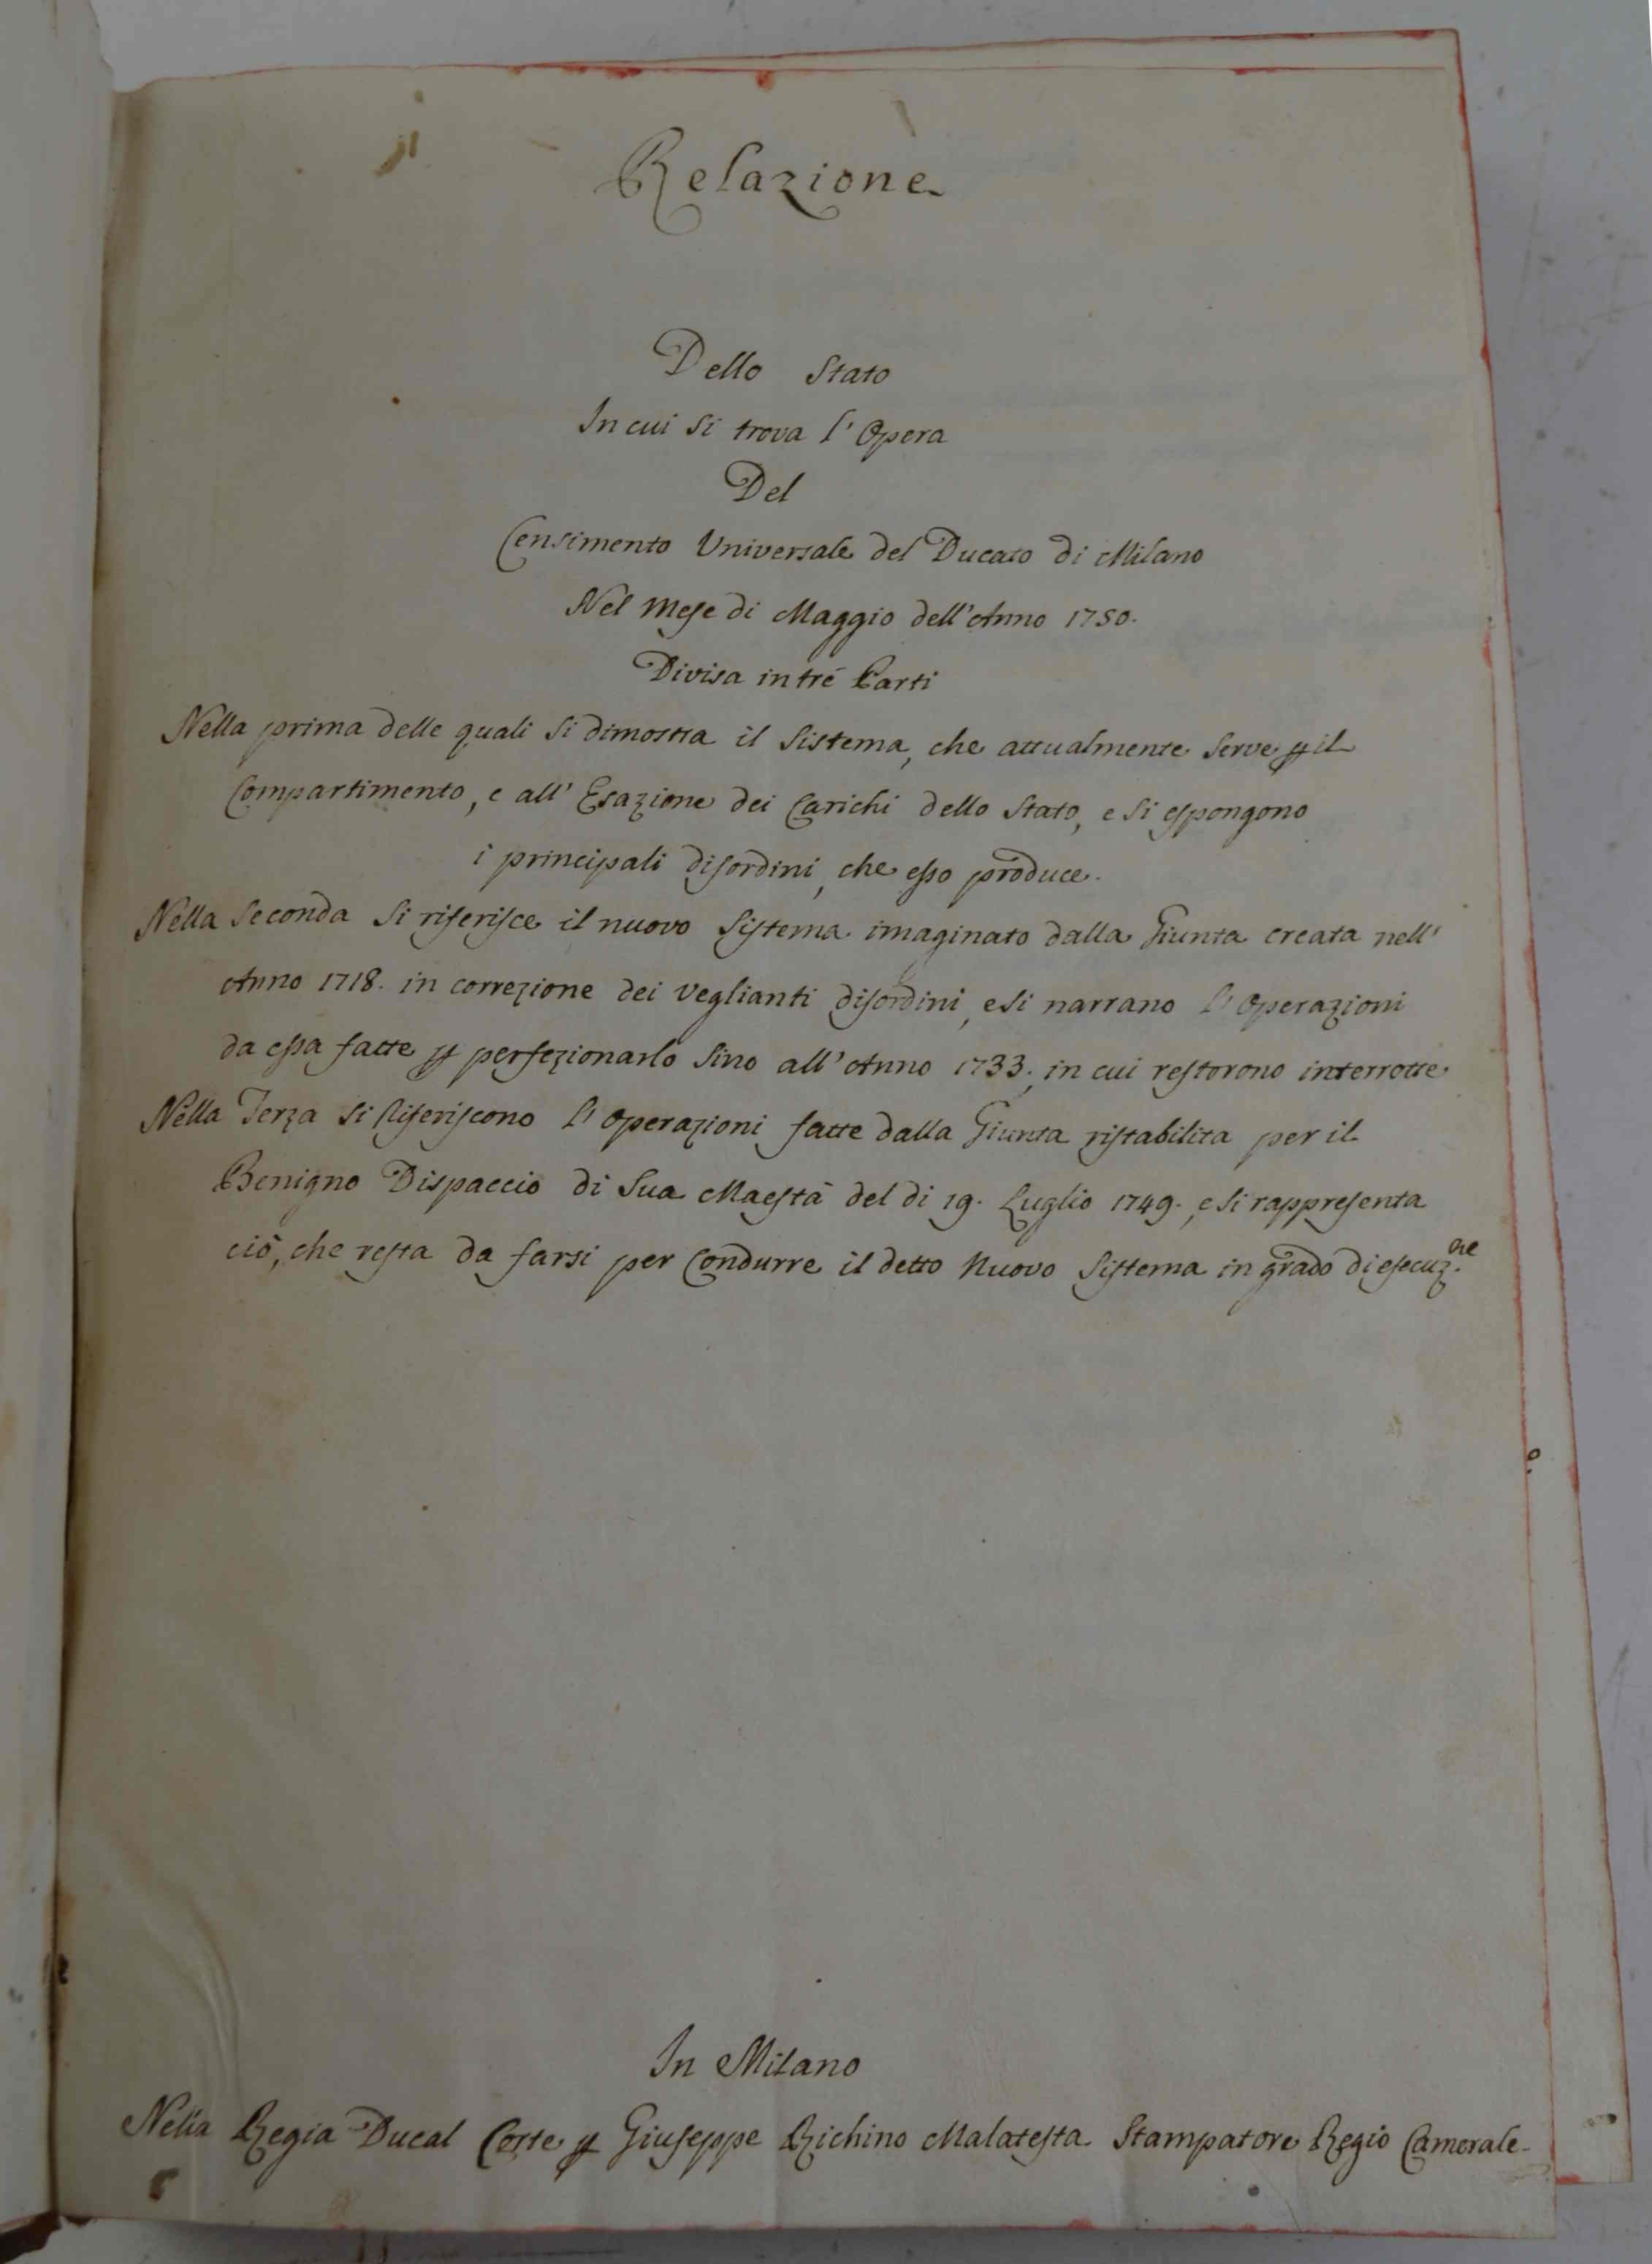 Relazione
Dello Stato
In cui si trova l'Opera
Del
Censimento Universale del Ducato di Milano
Nel Mese di Maggio dell'Anno 1750.
Divisa in tré Parti
Nella prima delle quali si dimostra il Sistema, che attualmente serve ꝑ il
Compartimento, e all'Esazione dei Carichi dello Stato, e si espongono
i principali disordini, che esso produce.
Nella Seconda si riferisce il nuovo Sistema imaginato dalla Giunta creata nell'
Anno 1718. in correzione dei veglianti disordini, e si narrano l'Operazioni
da essa fatte ꝑ perfezionarlo sino all'Anno 1733., in cui restorono interrotte
Nella Terza si riferiscono l'Operazioni fatte dalla Giunta ristabilita per il
Benigno Dispaccio di Sua Maestà del di 19. Luglio 1749., e si rappresenta
ciò, che resta da farsi per Condurre il detto Nuovo Sistema in grado di esecuz.ne
In Milano
Nella Regia Ducal Corte ꝑ Giuseppe Richino Malatesta Stampatore Regio Camerale